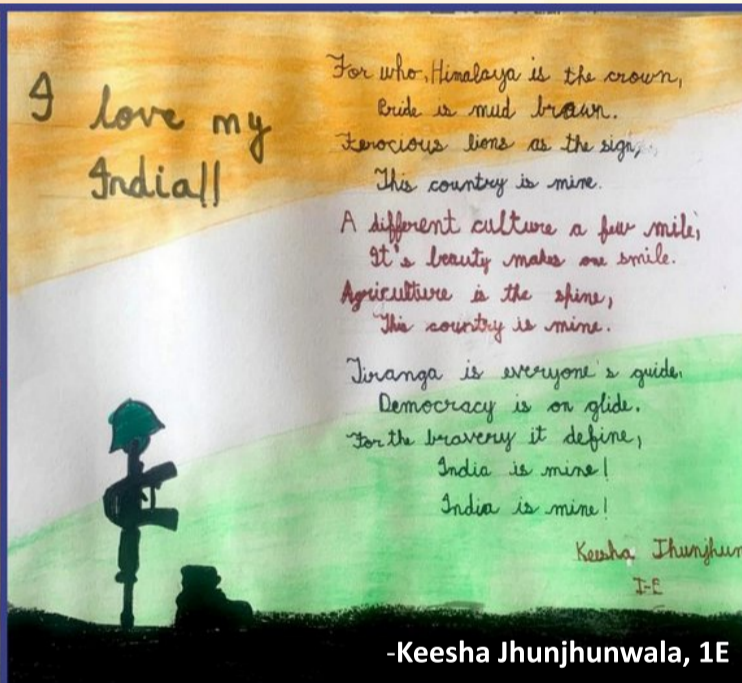 I love my
India!!
For who, Himalaya is the crown,
Bride is mud brown.
Ferocious lions as the sign,
This country is mine.
A different culture a few mile;
It's beauty makes one smile.
Agriculture is the spine,
This country is mine.
Tiranga is everyone's guide,
Democracy is on glide.
For the bravery it define,
India is mine!
India is mine!
Keesha Jhunjhun
I-E
-Keesha Jhunjhunwala, 1E